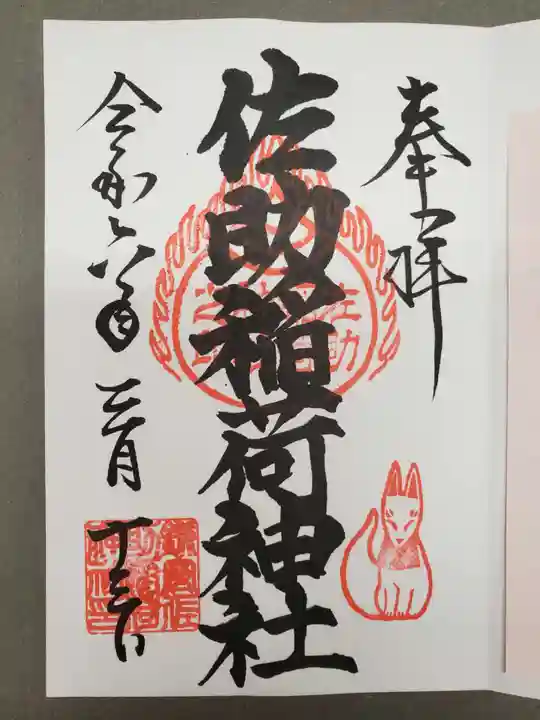 奉拝
佐助稲荷神社
令和六年三月十三日